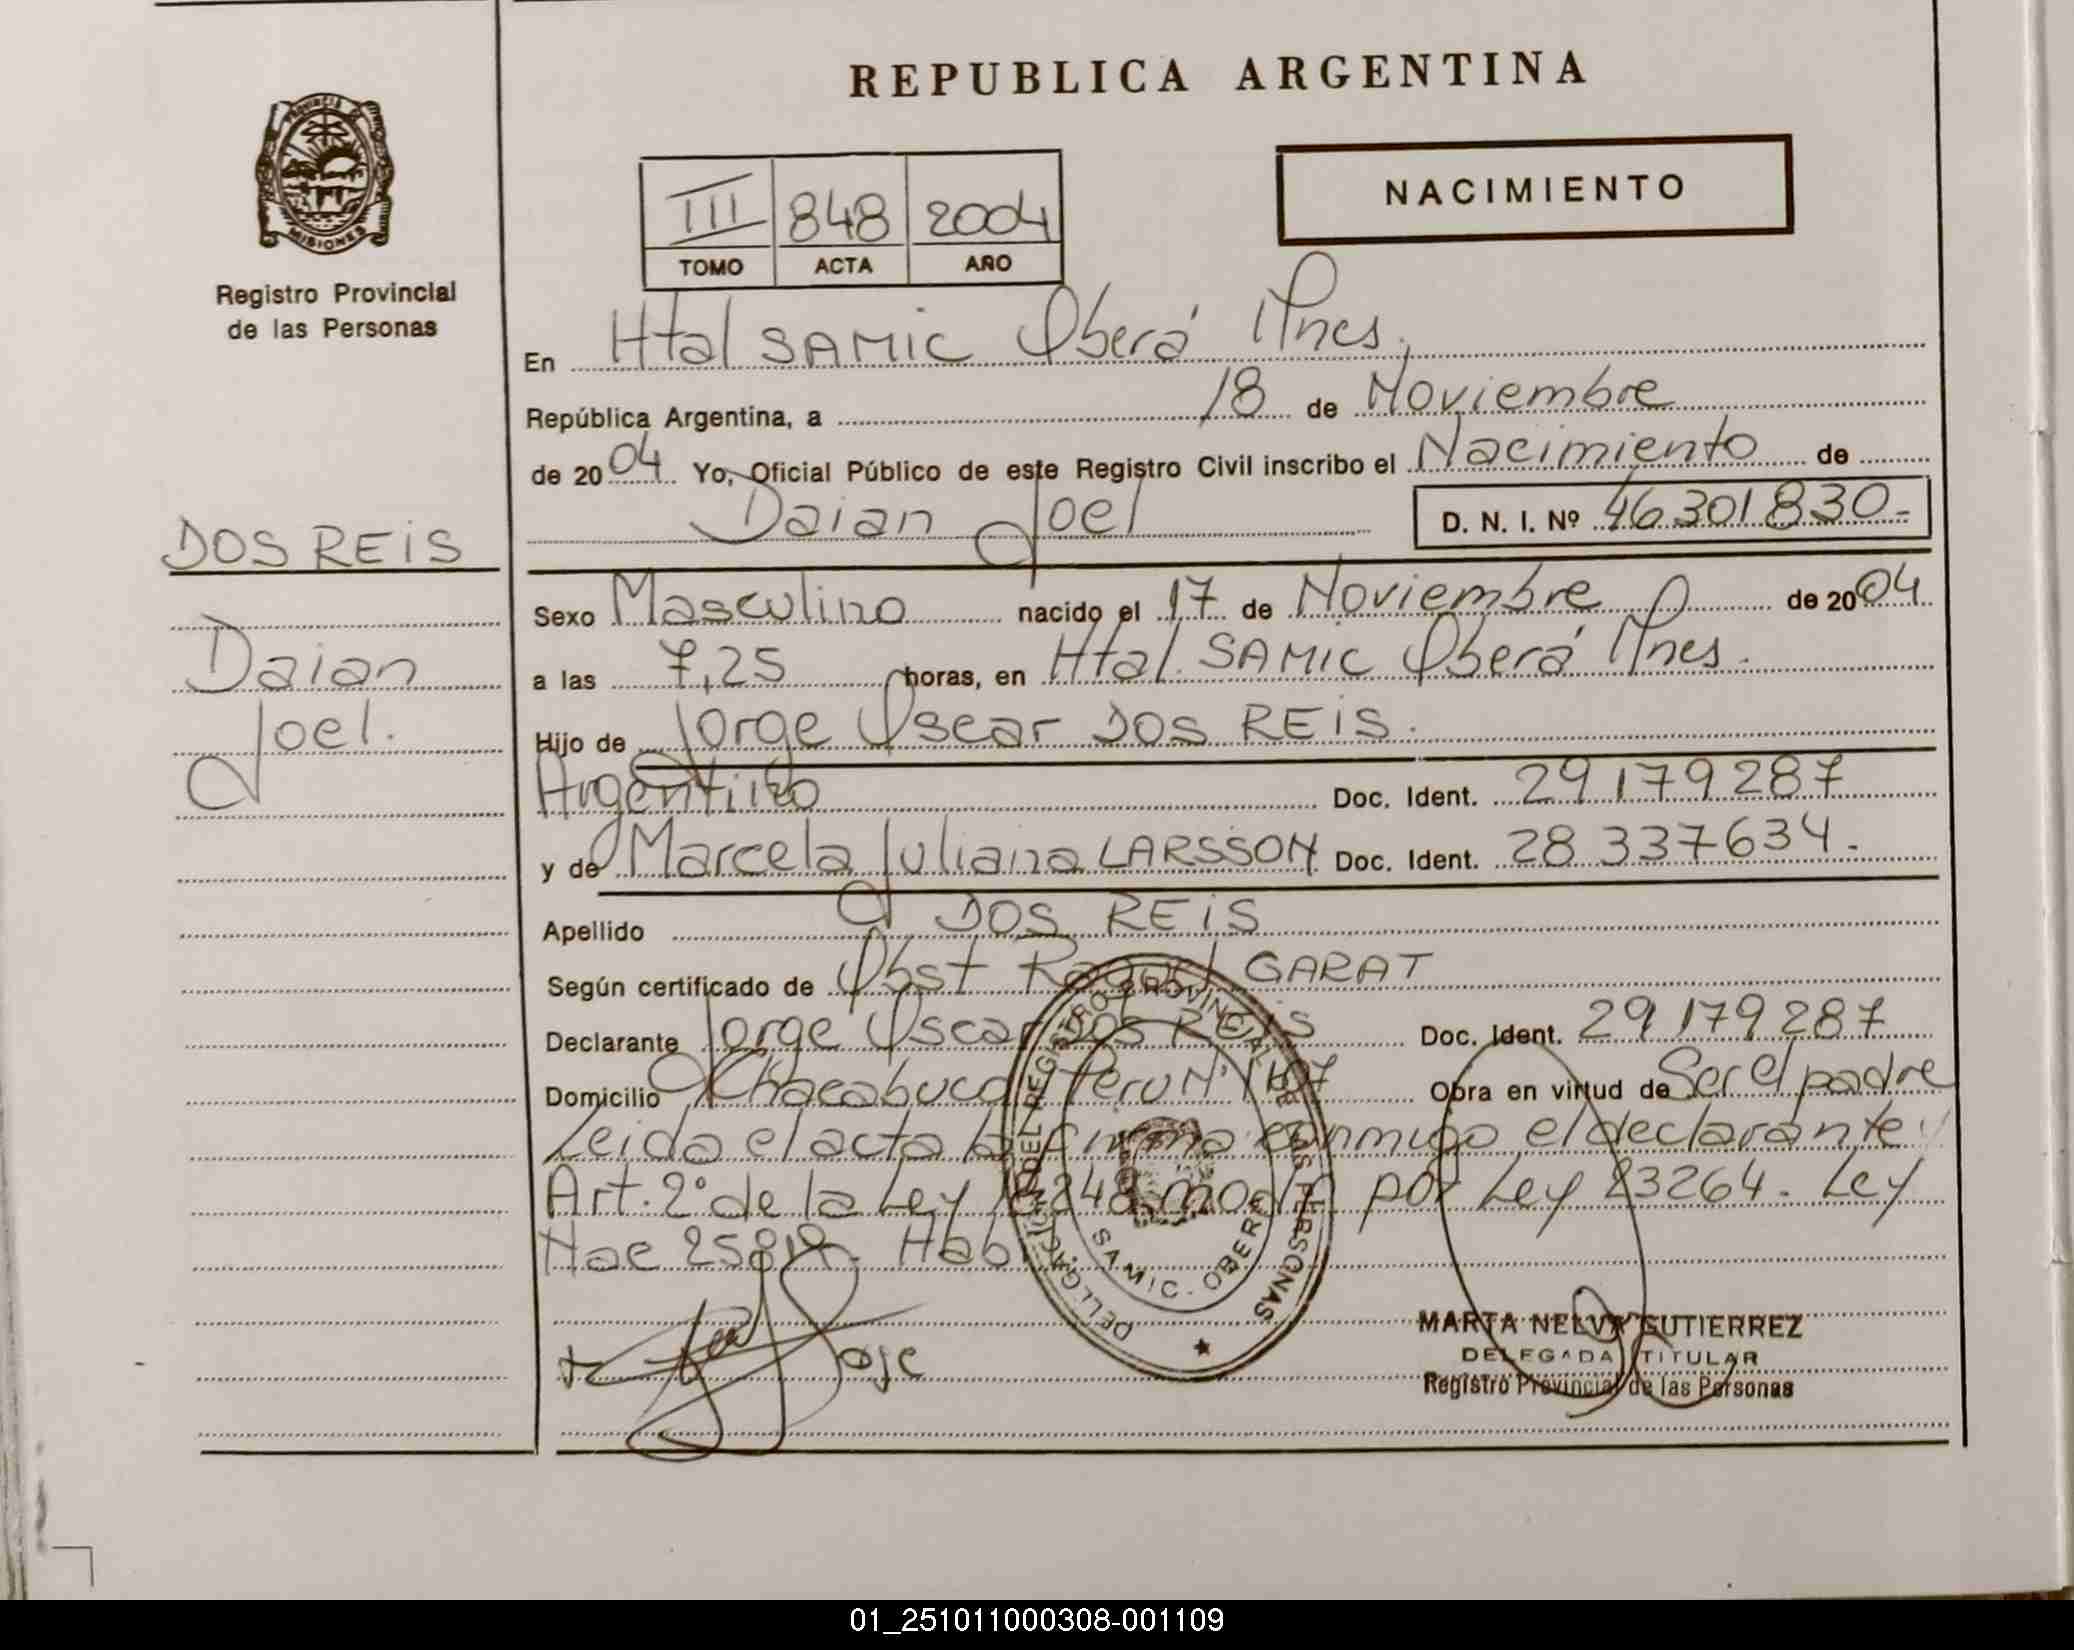 REPUBLICA ARGENTINA
PROVINCIA DE MISIONES
Registro Provincial
de las Personas
III 848 2004
TOMO ACTA AÑO
NACIMIENTO
En Htal SAMIC Oberá Mnes.
República Argentina, a 18 de Noviembre
de 2004 Yo, Oficial Público de este Registro Civil inscribo el Nacimiento de
Daian Joel
D. N. I. Nº 46301830-
DOS REIS
Daian
Joel.
Sexo Masculino nacido el 17 de Noviembre de 2004
a las 7,25 horas, en Htal. SAMIC Oberá Mnes.
Hijo de Jorge Oscar DOS REIS.
Argentino Doc. Ident. 29179287
y de Marcela Juliana LARSSON Doc. Ident. 28337634.
Apellido DOS REIS
Según certificado de Obst Raquel GARAT
Declarante Jorge Oscar DOS REIS Doc. Ident. 29179287
Domicilio Chacabuco Peru Nº Obra en virtud de Ser el padre
Leida el acta la firma conmigo el declarante
Art. 2º de la Ley 18248 modf por Ley 23264. Ley
Nac 25819. Hab
DELEGACION DEL REGISTRO PROVINCIAL DE LAS PERSONAS
SAMIC - OBERA
MARTA NELVA GUTIERREZ
DELEGADA TITULAR
Registro Provincial de las Personas
01_251011000308-001109